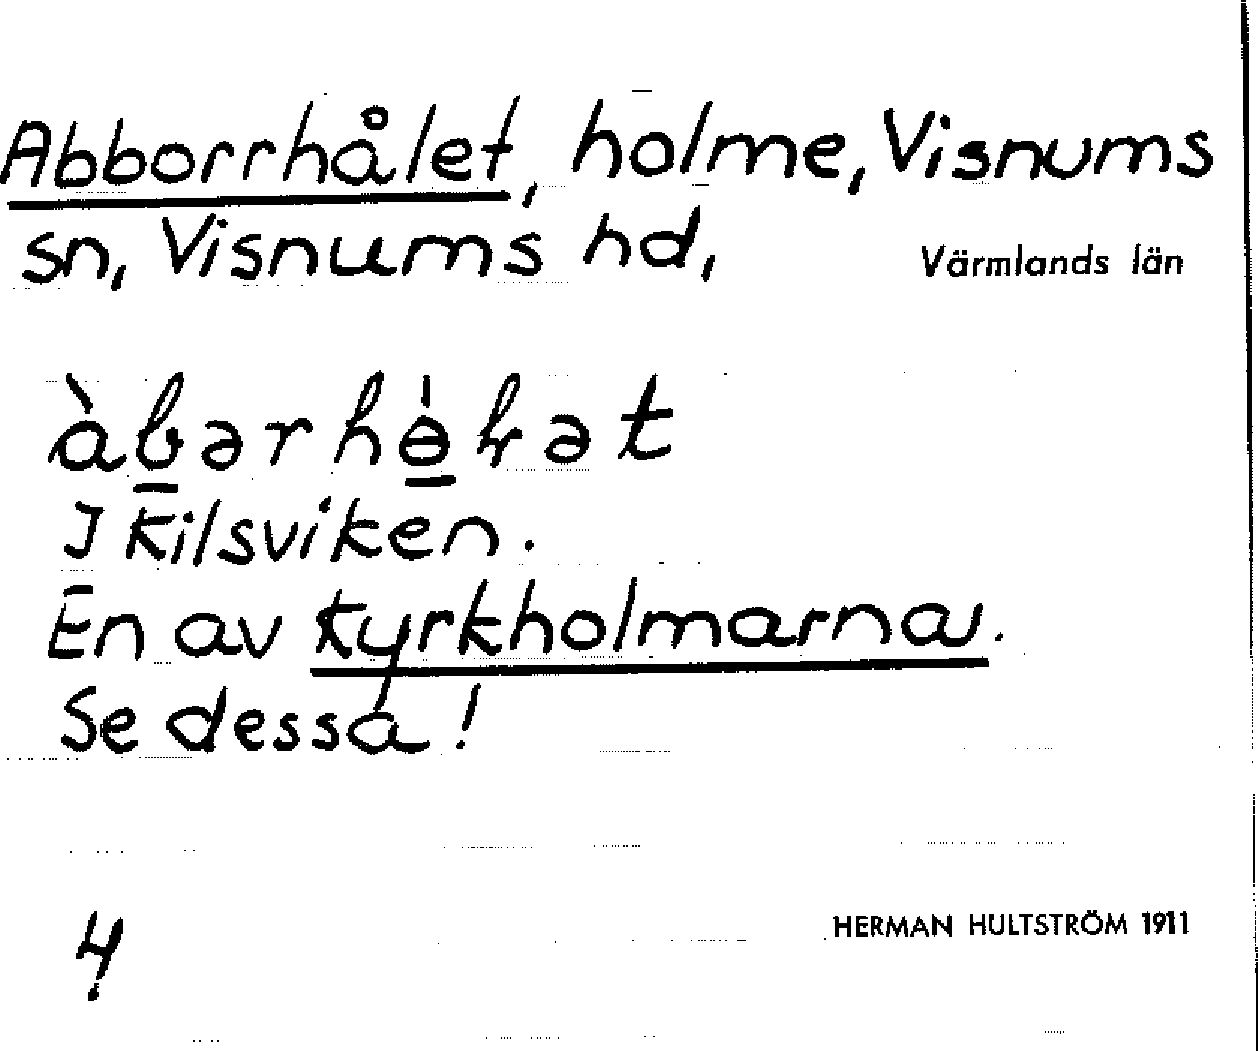 Abborrhålet, holme, Visnums
sn, Visnums hd, Värmlands län
I Kilsviken.
En av Kyrkholmarna.
Se dessa!
4
HERMAN HULTSTRÖM 1911